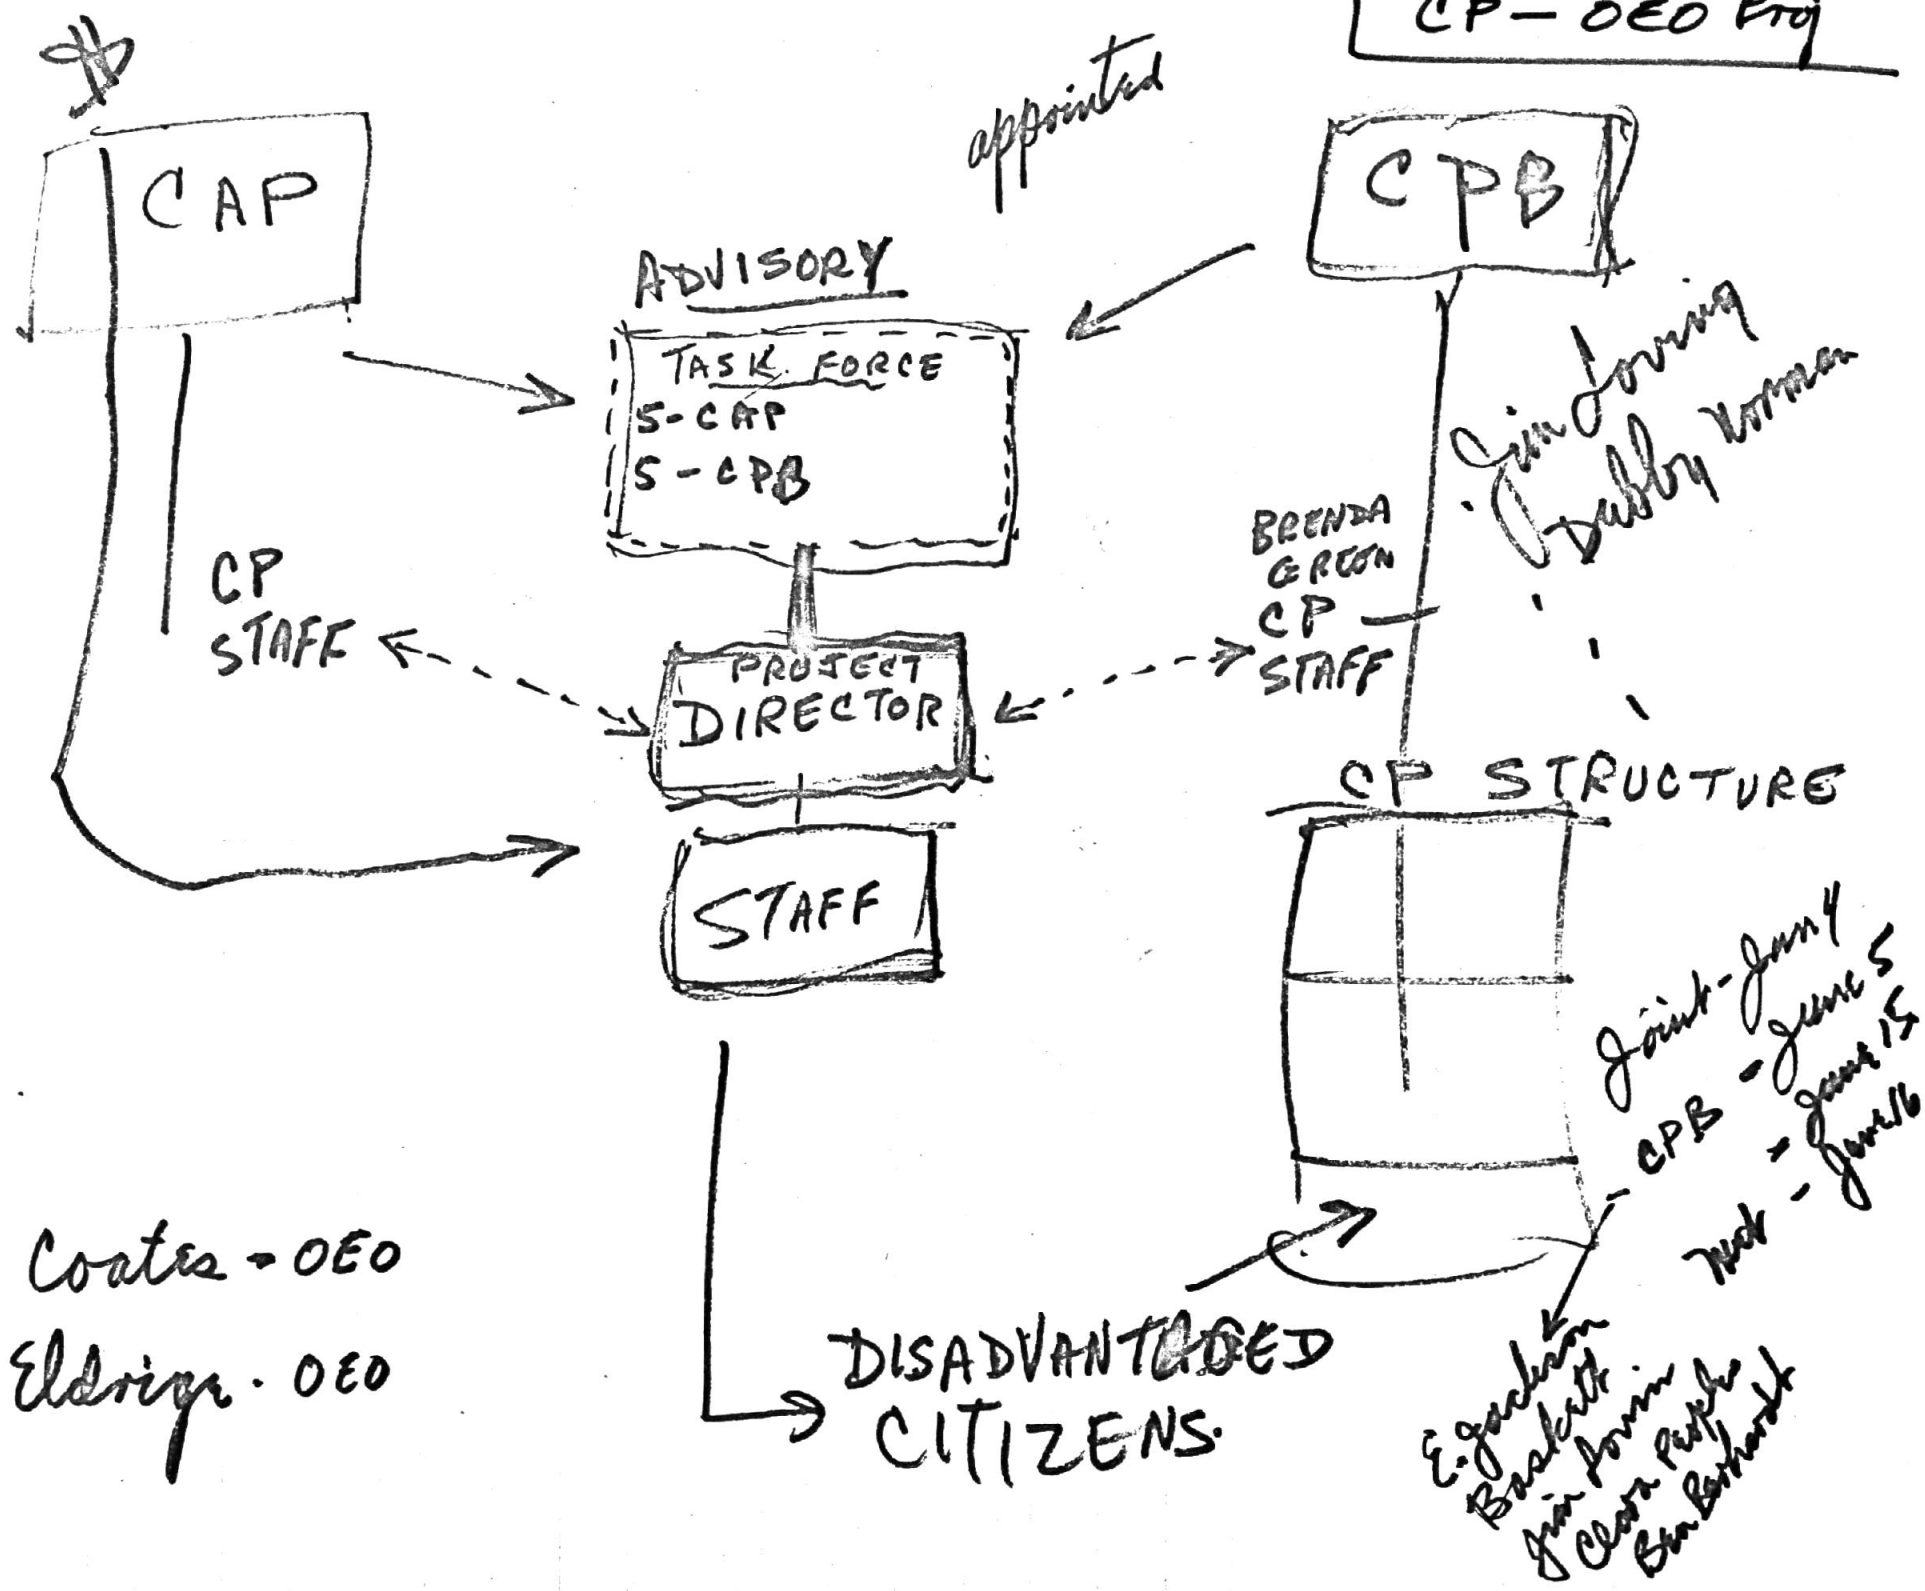 CP — OEO
$
appointed
CAP
CPB
ADVISORY
TASK FORCE
5-CAP
5-CPB
Jim Loving
Debby Norman
BRENDA
GREEN
CP
STAFF
CP
STAFF
PROJECT
DIRECTOR
CP STRUCTURE
STAFF
Joint - Jan 4
CPB - June 5
- June 15
- June 16
Coates - OEO
Eldrige - OEO
DISADVANTAGED
CITIZENS.
E. Jackson
Baskett
Jim
Clara Peoples
Ben